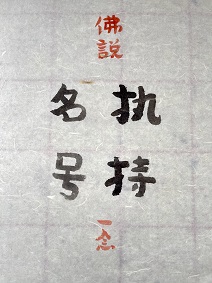 佛説
执持
名号
一念